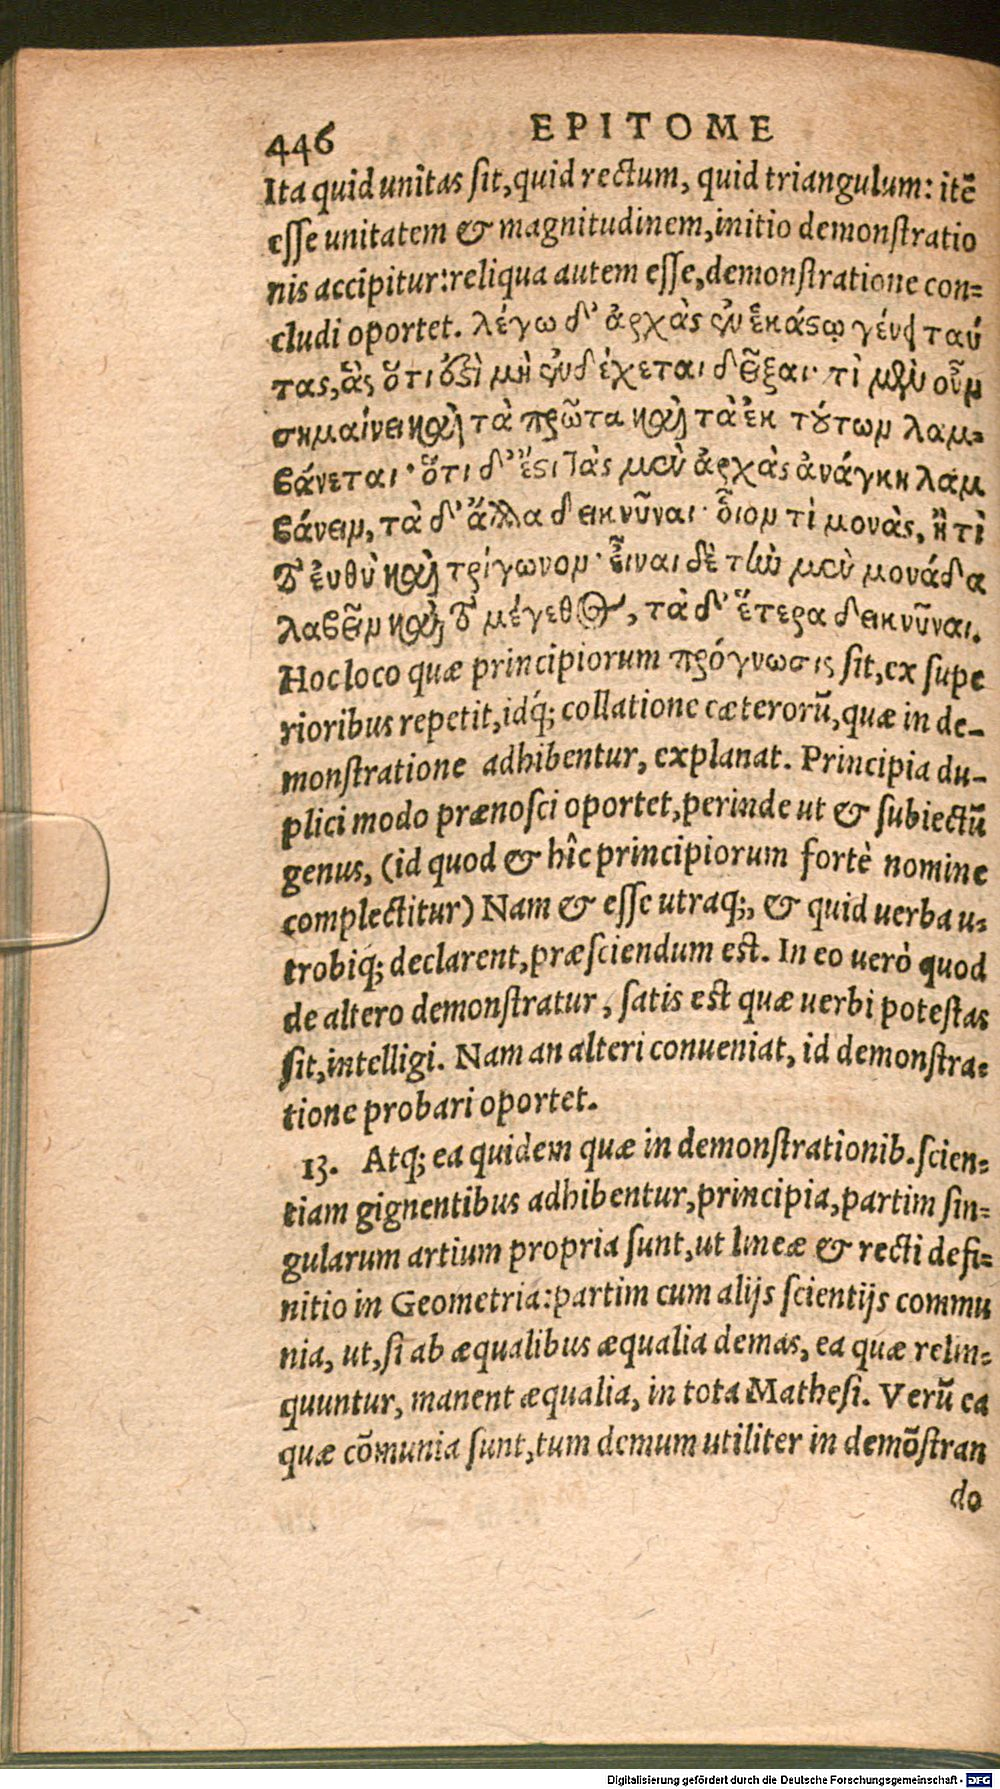 446 EPITOME
Ita quid unitas ſit, quid rectum, quid triangulum: itē
eſſe unitatem & magnitudinem, initio demonſtratio
nis accipitur: reliqua autem eſſe, demonſtratione con=
cludi oportet. λέγω δ' ἀρχὰς ἐν ἑκάϛῳ γένει ταύ
τας, ἃς ὅτι ἐϛὶ μὴ ἐνδέχεται δεῖξαι· τὶ μὲν οὖν
σημαίνει καὶ τὰ πρῶτα καὶ τὰ ἐκ τούτων λαμ=
βάνεται· ὅτι δ' ἔϛι τὰς μὲν ἀρχὰς ἀνάγκη λαμ
βάνειν, τὰ δ' ἄλλα δεικνῦναι· ὅιον τὶ μονὰς, ἢ τὶ
τὸ ἐυθὺ καὶ τρίγωνον· ἔιναι δὲ τὴν μὲν μονάδα
λαβεῖν καὶ τὸ μέγεθος, τὰ δ' ἕτερα δεικνῦναι.
Hoc loco quæ principiorum πρόγνωσις ſit, ex ſupe
rioribus repetit, idq́; collatione cæterorū, quæ in de-
monſtratione adhibentur, explanat. Principia du-
plici modo prænoſci oportet, perinde ut & ſubiectū
genus, (id quod & hîc principiorum fortè nomine
complectitur) Nam & eſſe utraq;, & quid uerba u=
trobiq; declarent, præſciendum est. In eo uerò quod
de altero demonſtratur, ſatis est quæ uerbi poteſtas
ſit, intelligi. Nam an alteri conueniat, id demonſtra=
tione probari oportet.
13. Atq; ea quidem quæ in demonſtrationib. ſcien=
tiam gignentibus adhibentur, principia, partim ſin=
gularum artium propria ſunt, ut lineæ & recti defi=
nitio in Geometria: partim cum alijs ſcientijs commu
nia, ut, ſi ab æqualibus æqualia demas, ea quæ relin=
quuntur, manent æqualia, in tota Matheſi. Verū ea
quæ cōmunia ſunt, tum demum utiliter in demōſtran
do
Digitalisierung gefördert durch die Deutsche Forschungsgemeinschaft - DFG